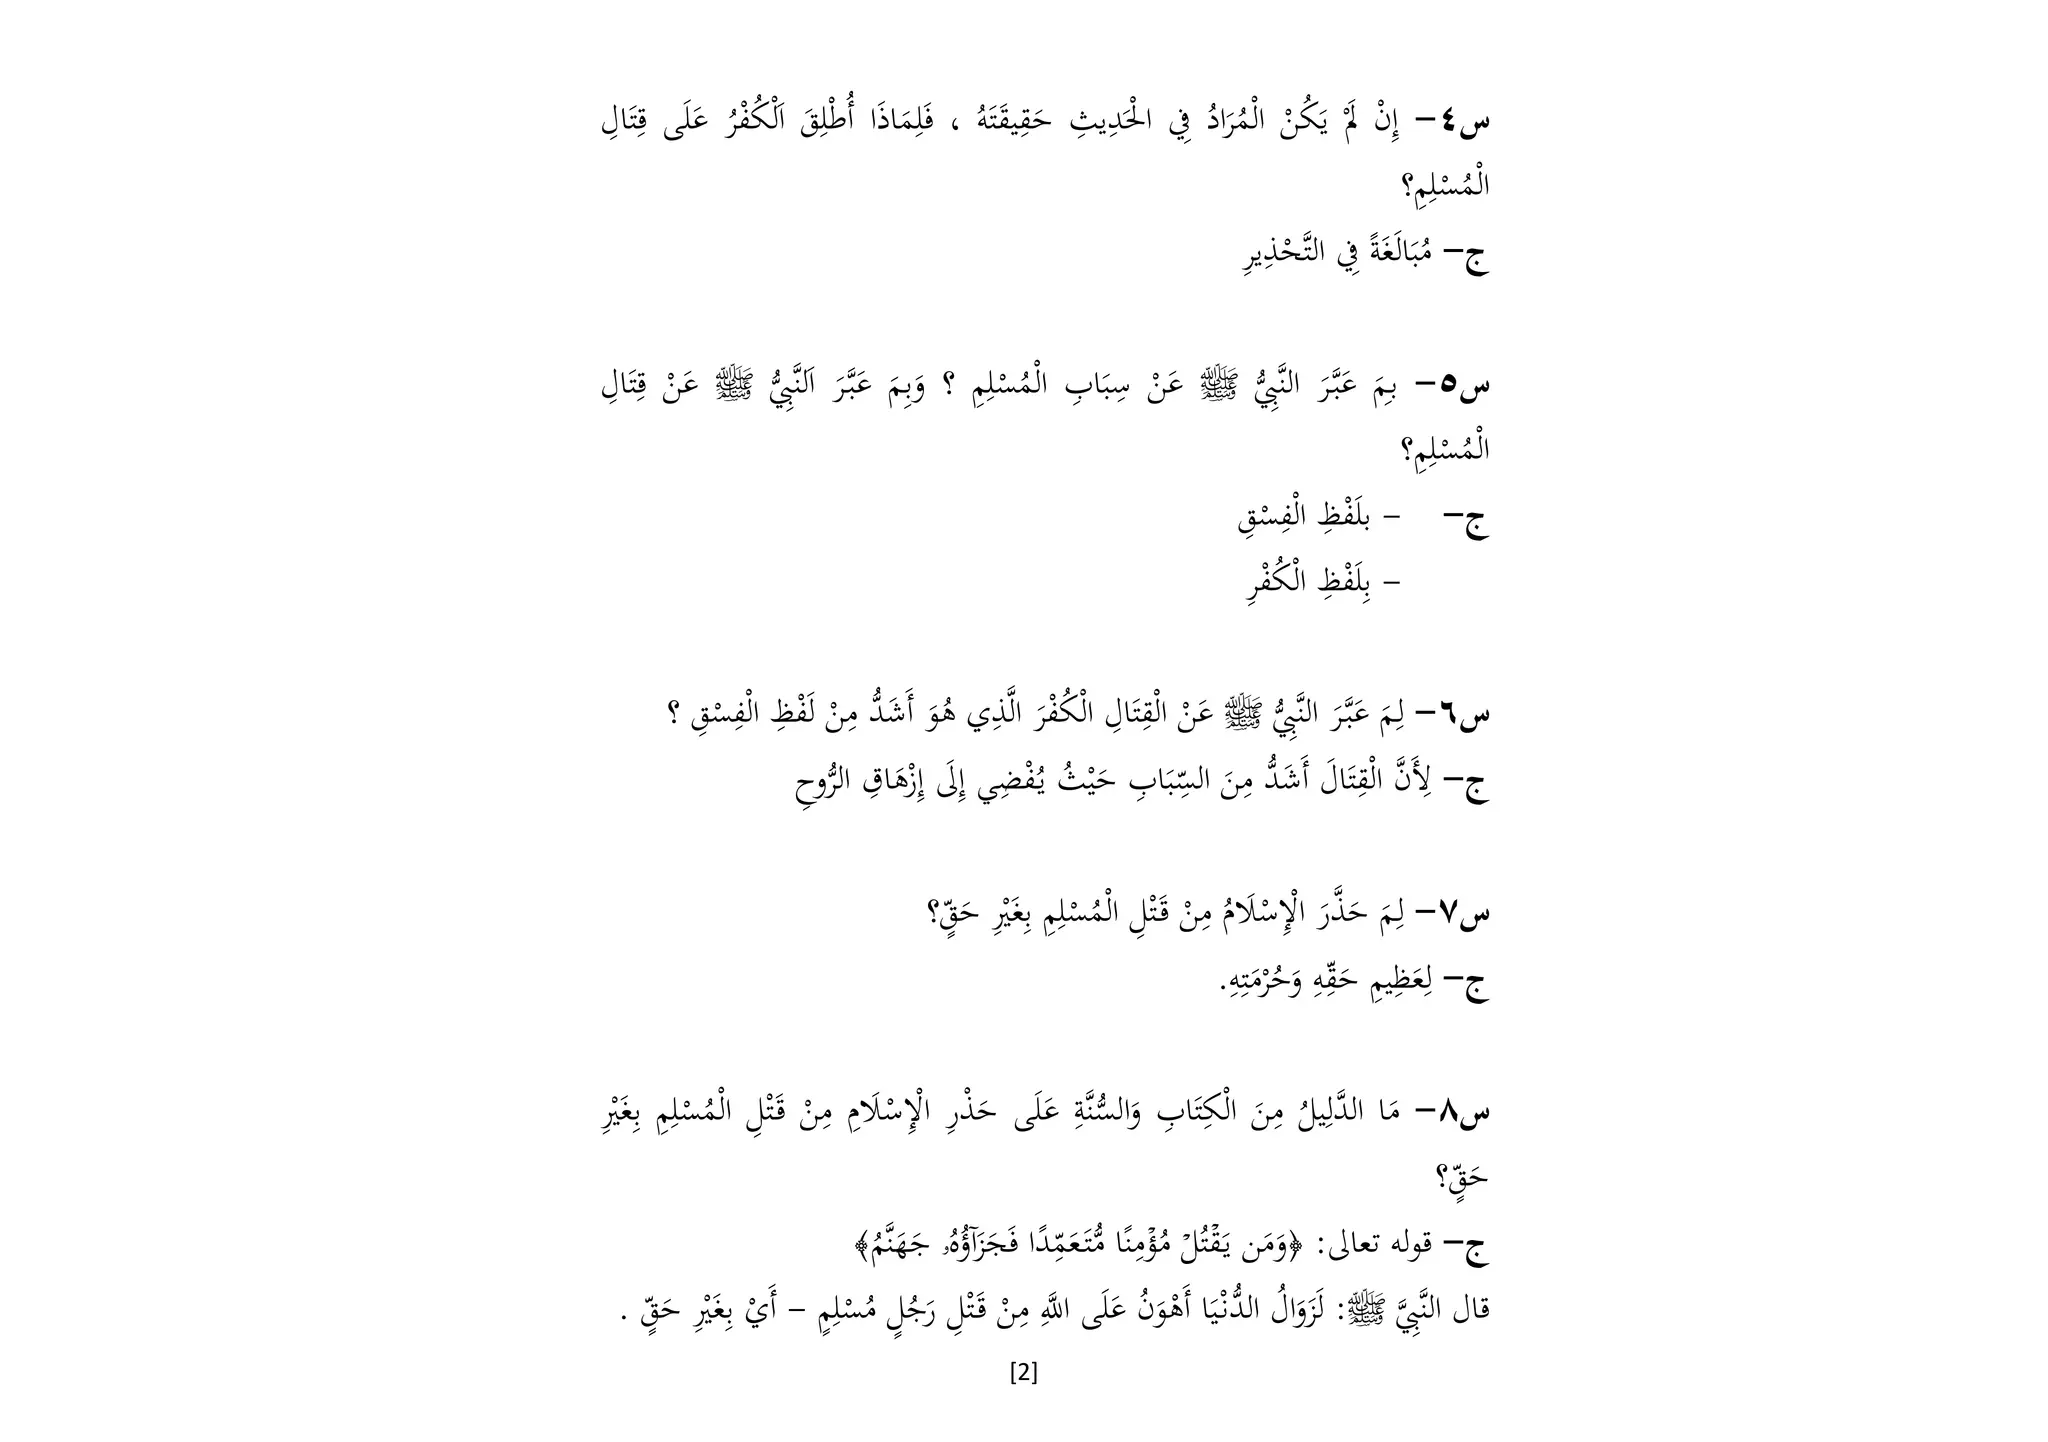 س٤- إِنْ لَمْ يَكُنْ الْمُرَادُ فِي الْحَدِيثِ حَقِيقَتَهُ ، فَلِمَاذَا أُطْلِقَ اَلْكُفْرُ عَلَى قِتَالِ
الْمُسْلِمِ؟
ج- مُبَالَغَةً فِي التَّحْذِيرِ
س٥- بِمَ عَبَّرَ النَّبِيُّ ﷺ عَنْ سِبَابِ الْمُسْلِمِ ؟ وَبِمَ عَبَّرَ اَلنَّبِيُّ ﷺ عَنْ قِتَالِ
الْمُسْلِمِ؟
ج- – بلَفْظِ الْفِسْقِ
– بِلَفْظِ الْكُفْرِ
س٦- لِمَ عَبَّرَ النَّبِيُّ ﷺ عَنْ الْقِتَالِ الْكُفْرَ الَّذِي هُوَ أَشَدُّ مِنْ لَفْظِ الْفِسْقِ ؟
ج- لِأَنَّ الْقِتَالَ أَشَدُّ مِنَ السِّبَابِ حَيْثُ يُفْضِي إِلَى إِزْهَاقِ الرُّوحِ
س٧- لِمَ حَذَّرَ الْإِسْلَامُ مِنْ قَتْلِ الْمُسْلِمِ بِغَيْرِ حَقٍّ؟
ج- لِعَظِيمِ حَقِّهِ وَحُرْمَتِهِ.
س٨- مَا الدَّلِيلُ مِنَ الْكِتَابِ وَالسُّنَّةِ عَلَى حَذْرِ الْإِسْلَامِ مِنْ قَتْلِ الْمُسْلِمِ بِغَيْرِ
حَقٍّ؟
ج- قوله تعالى: ﴿وَمَن يَقْتُلْ مُؤْمِنًا مُّتَعَمِّدًا فَجَزَآؤُهُۥ جَهَنَّمُ﴾
قال النَّبِيَّ ﷺ: لَزَوَالُ الدُّنْيَا أَهْوَنُ عَلَى اللَّهِ مِنْ قَتْلِ رَجُلٍ مُسْلِمٍ – أَيْ بِغَيْرِ حَقٍّ .
[2]